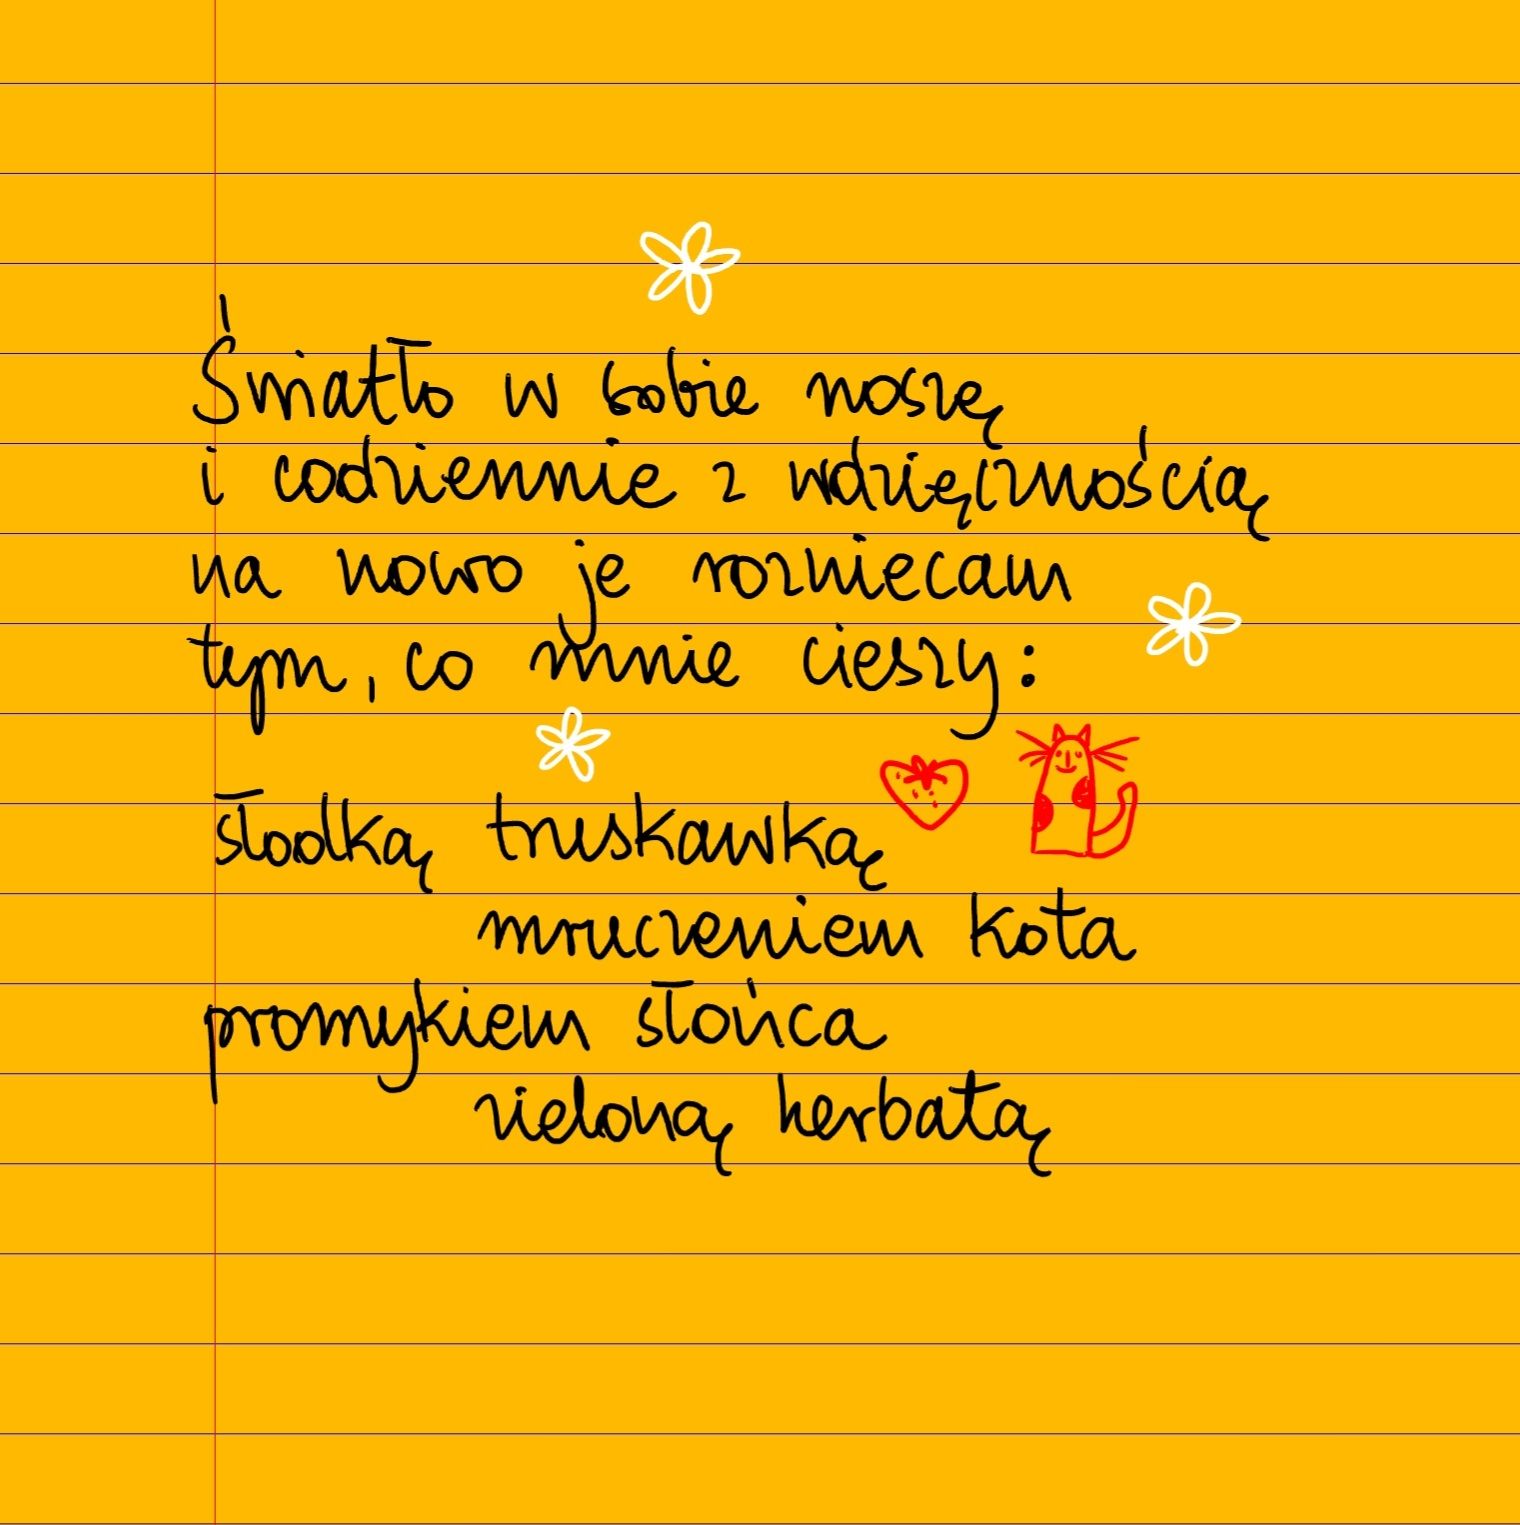 Światło w sobie noszę
i codziennie z wdzięcznością
na nowo je rozniecam
tym, co mnie cieszy:
słodką truskawką
mruczeniem kota
promykiem słońca
zieloną herbatą